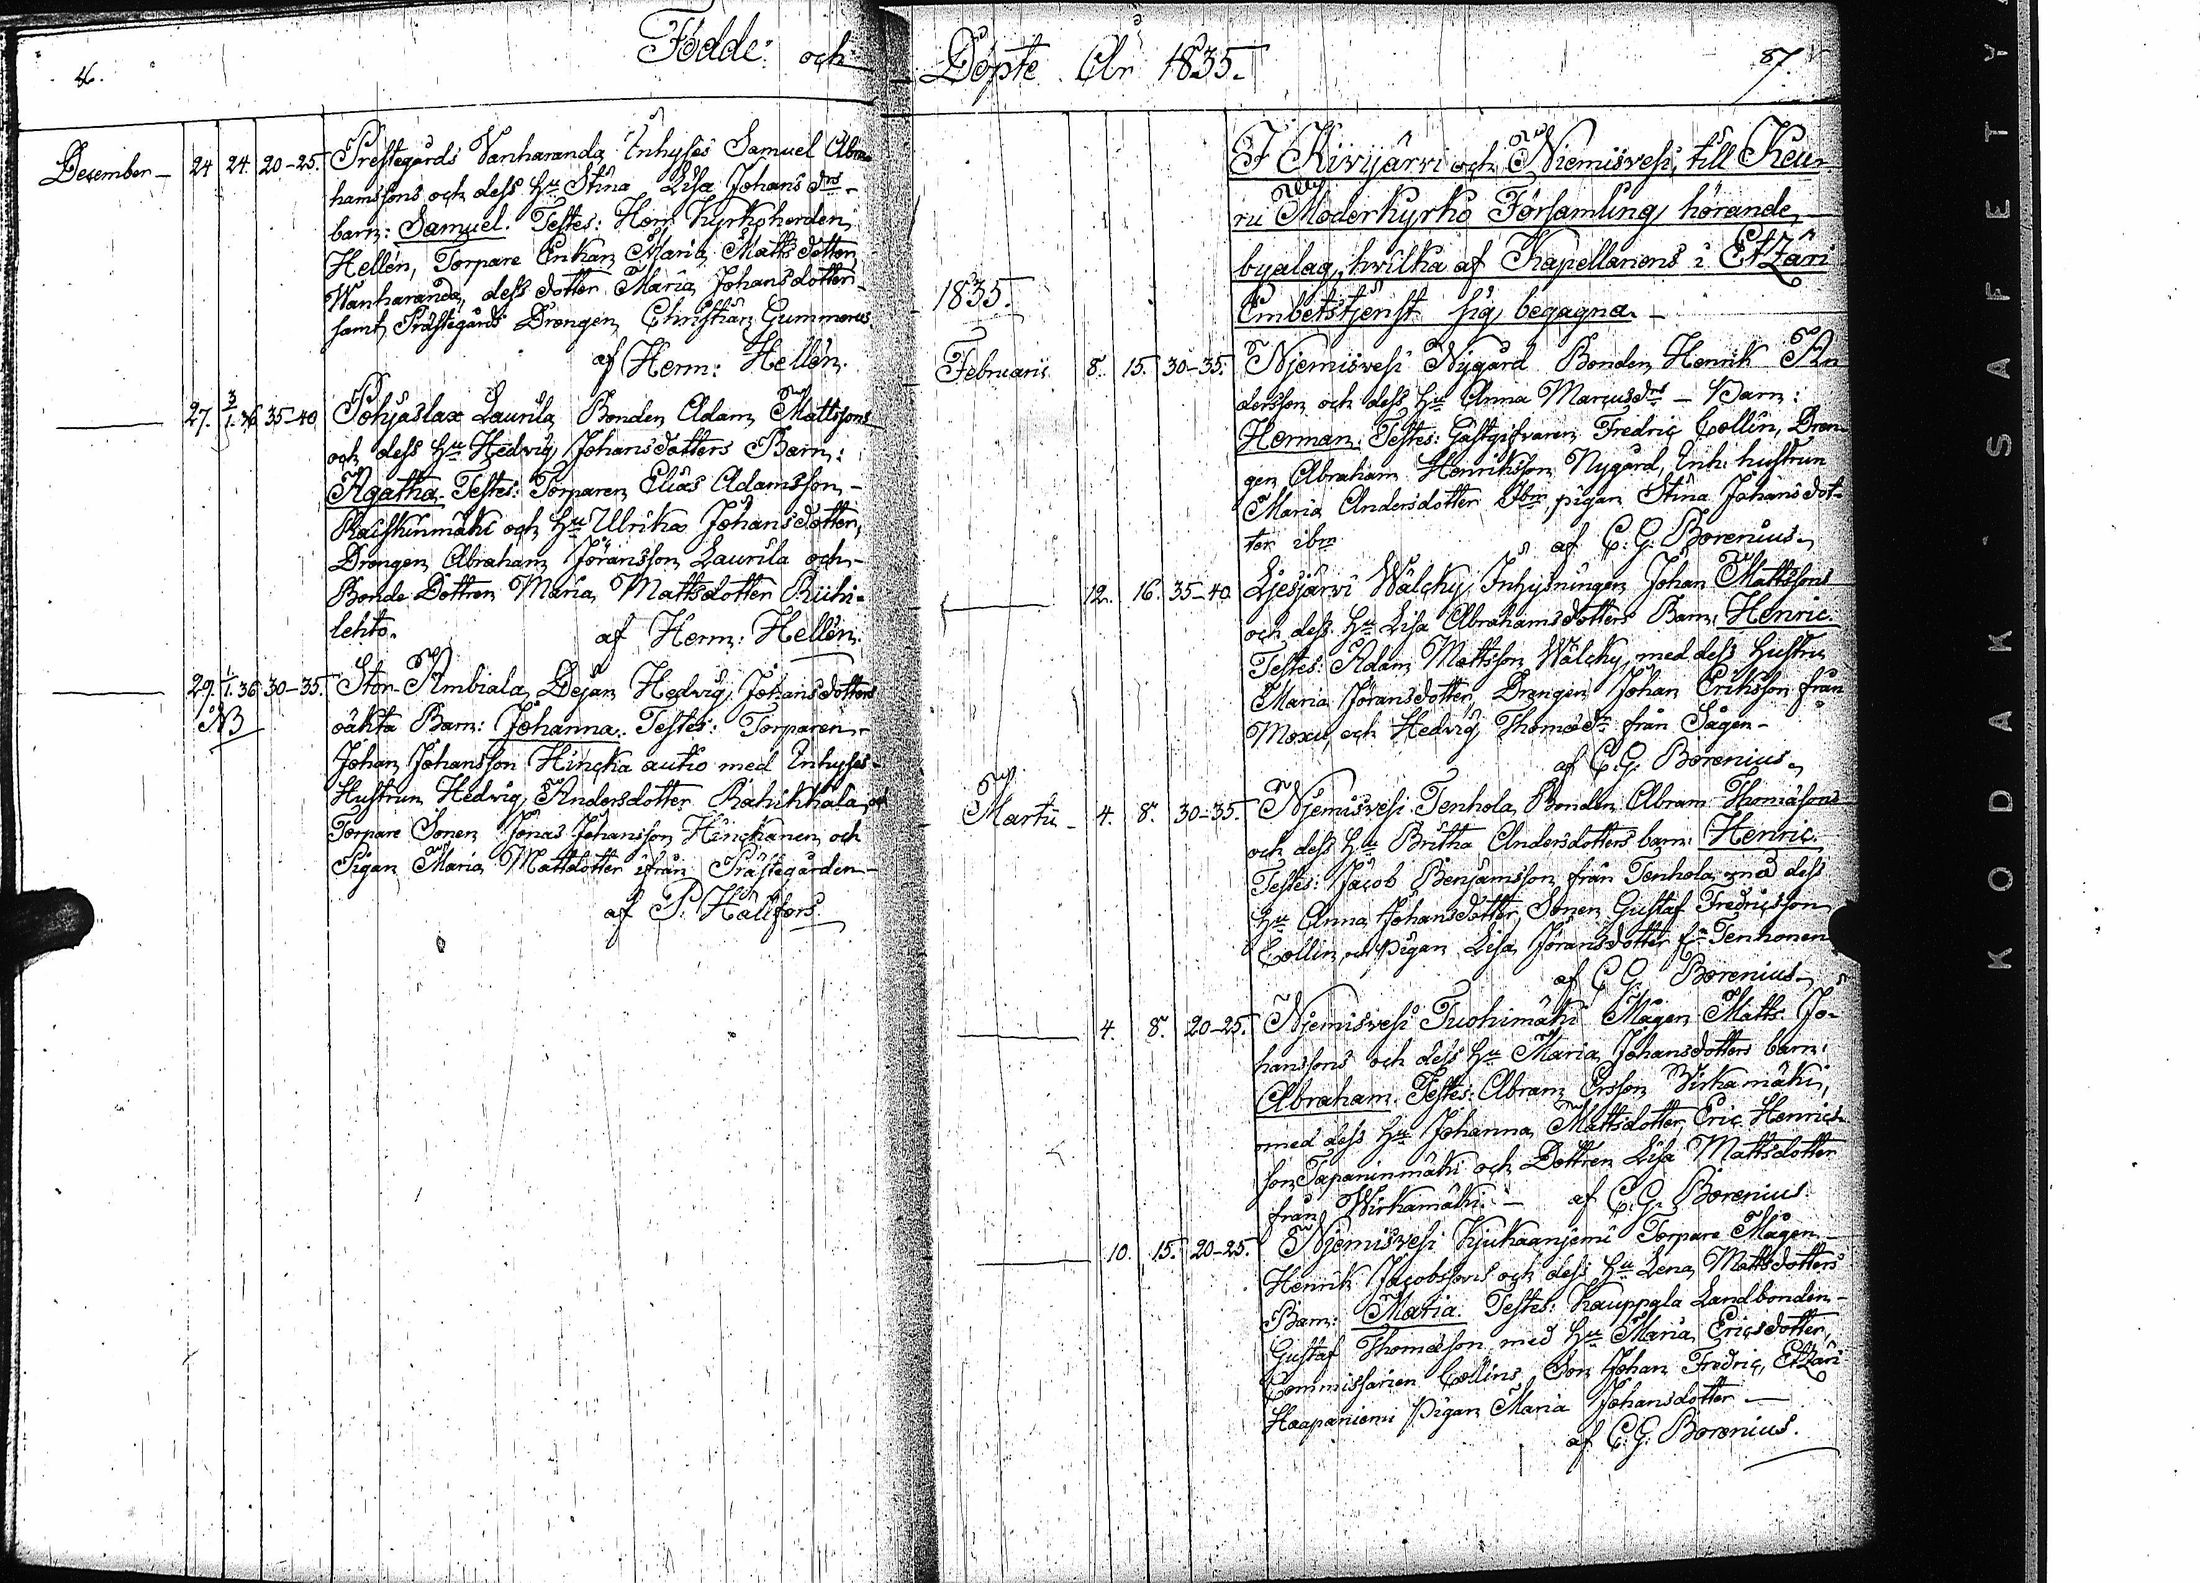 86.
Födde och
December 24 24. 20-25. Prestegårds Vanharanda Inhyses Samuel Abra-
hamssons och dess Hu Stina Lisa Johans drs
barn: Samuel. Testes: Herr Kyrkoherden
Hellén, Torpare Enkan Maria Matts dotter
Wanharanda, dess dotter Maria Johansdotter
samt Prästegårds Drengen Christian Gummerus.
af Herm: Hellén.
27. 3/1.36 35-40 Pohjaslax Laurila Bonden Adam Mattssons
och dess Hu Hedvig Johansdotters Barn:
Agatha. Testes: Torparen Elias Adamsson
Raiskinmäki och Hu Ulrika Johansdotter,
Drengen Abraham Jöransson Laurila och
Bonde Dottren Maria Mattsdotter Riihi-
lehto. af Herm: Hellén.
29. 1/1.36 30-35. Stor-Ambiala Dejan Hedvig Johansdotters
NB oäkta Barn: Johanna. Testes: Torparen
Johan Johansson Hincka autio med Inhyses
Hustrun Hedvig Andersdotter Rahikkala, och
Torpare Sonen Jonas Johansson Hinckanen och
Pigan Maria Mattsdotter ifrån Prästegården
af P. Hällfors.
Döpte År 1835.
87.
I Kivijärvi och Niemisvesi, till Keu-
ru Moderkyrko Församling hörande
byalag, hvilka af Kapellanens i Etzäri
1835.
Embetstjenst sig begagna.
Februarii 8. 15. 30-35. Njemisvesi Nygård Bonden Henrik An-
dersson och dess Hu Anna Marcusdrs Barn:
Herman. Testes: Gästgifvaren Fredric Collin, Dren-
gen Abraham Henriksson Nygård, Inh. hustrun
Maria Andersdotter Ibm pigan Stina Johansdot-
ter ibm af C. G. Borenius.
12. 16. 35-40 Ljesjärvi Wälcky Inhysningen Johan Mattssons
och dess Hu Lisa Abrahamsdotters Barn: Henric.
Testes: Adam Mattsson Wälcky, med dess Hustru
Maria Jöransdotter, Drengen Johan Eriksson från
Moxu, och Hedvig Thomædr från Sågen
af C. G. Borenius.
Martii 4. 8. 30-35. Njemisvesi Tenhola Bonden Abram Thomassons
och dess Hu Britha Andersdotters barn: Henric.
Testes: Jacob Benjamsson från Tenhola med dess
Hu Anna Johansdotter, Sonen Gustaf Fredricsson
Collin och Pigan Lisa Jöransdotter fr. Tenhonen
af C. G. Borenius
4. 8. 20-25. Njemisvesi Tuohimäki Mågen Matts Jo-
hanssons och dess Hu Maria Johansdotters barn:
Abraham. Testes: Abram Ersson Wirkamäki,
med dess Hu Johanna Mattsdotter, Eric Henrics-
son Tapaninmäki och Dottren Lisa Mattsdotter
från Wirkamäki. af C. G. Borenius.
10. 15. 20-25. Njemisvesi Kjukaanjemi Torpare Mågen
Henrik Jacobssons och dess Hu Lena Mattsdotters
Barn: Maria. Testes: Kauppala Landbonden
Gustaf Thomasson med Hu Maria Ericsdotter,
Commissarien Collins Son Johan Fredric, Etzäri
Haapaniemi Pigan Maria Johansdotter
af C. G. Borenius.
KODAK · SAFETY